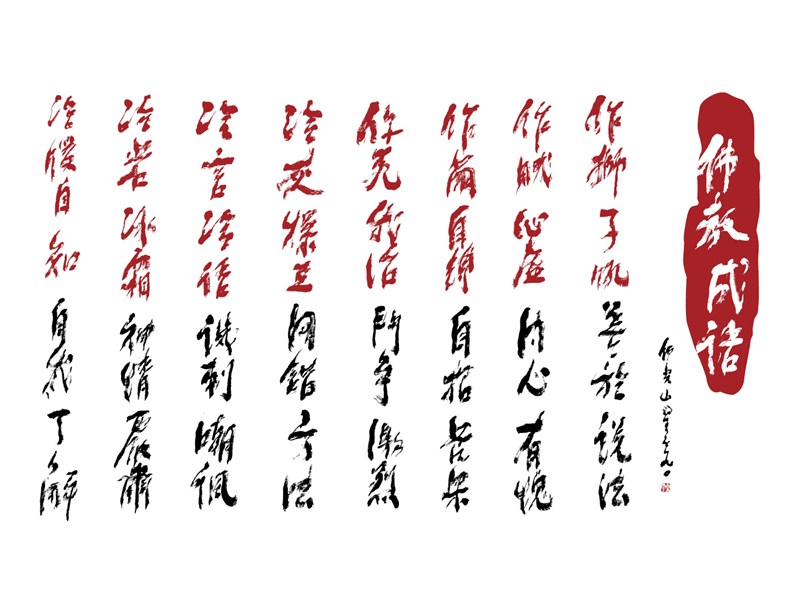 佛教成語
佛光山星雲
作獅子吼 善於說法
作賊心虛 心有愧
作繭自縛 自招苦果
你死我活 鬥爭激烈
冷灰爆豆 用錯方法
冷言冷語 譏刺嘲諷
冷若冰霜 神情嚴肅
冷暖自知 自我了解